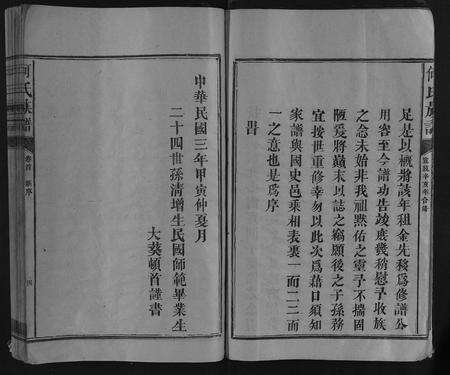 足是以概將該年租金先移爲修譜公
用容至今譜功告竣庶幾稍慰予收族
之念未始非我祖默佑之靈予不揣固
陋爰將顛末以誌之竊願後之子孫務
宜按世重修幸勿以此次爲藉口須知
家譜與國史邑乘相表裏一而二二而
一之意也是爲序
時
中華民國三年甲寅仲夏月
二十四世孫清增生民國師範畢業生
大葵頓首謹書
何氏族譜
卷首
序
四